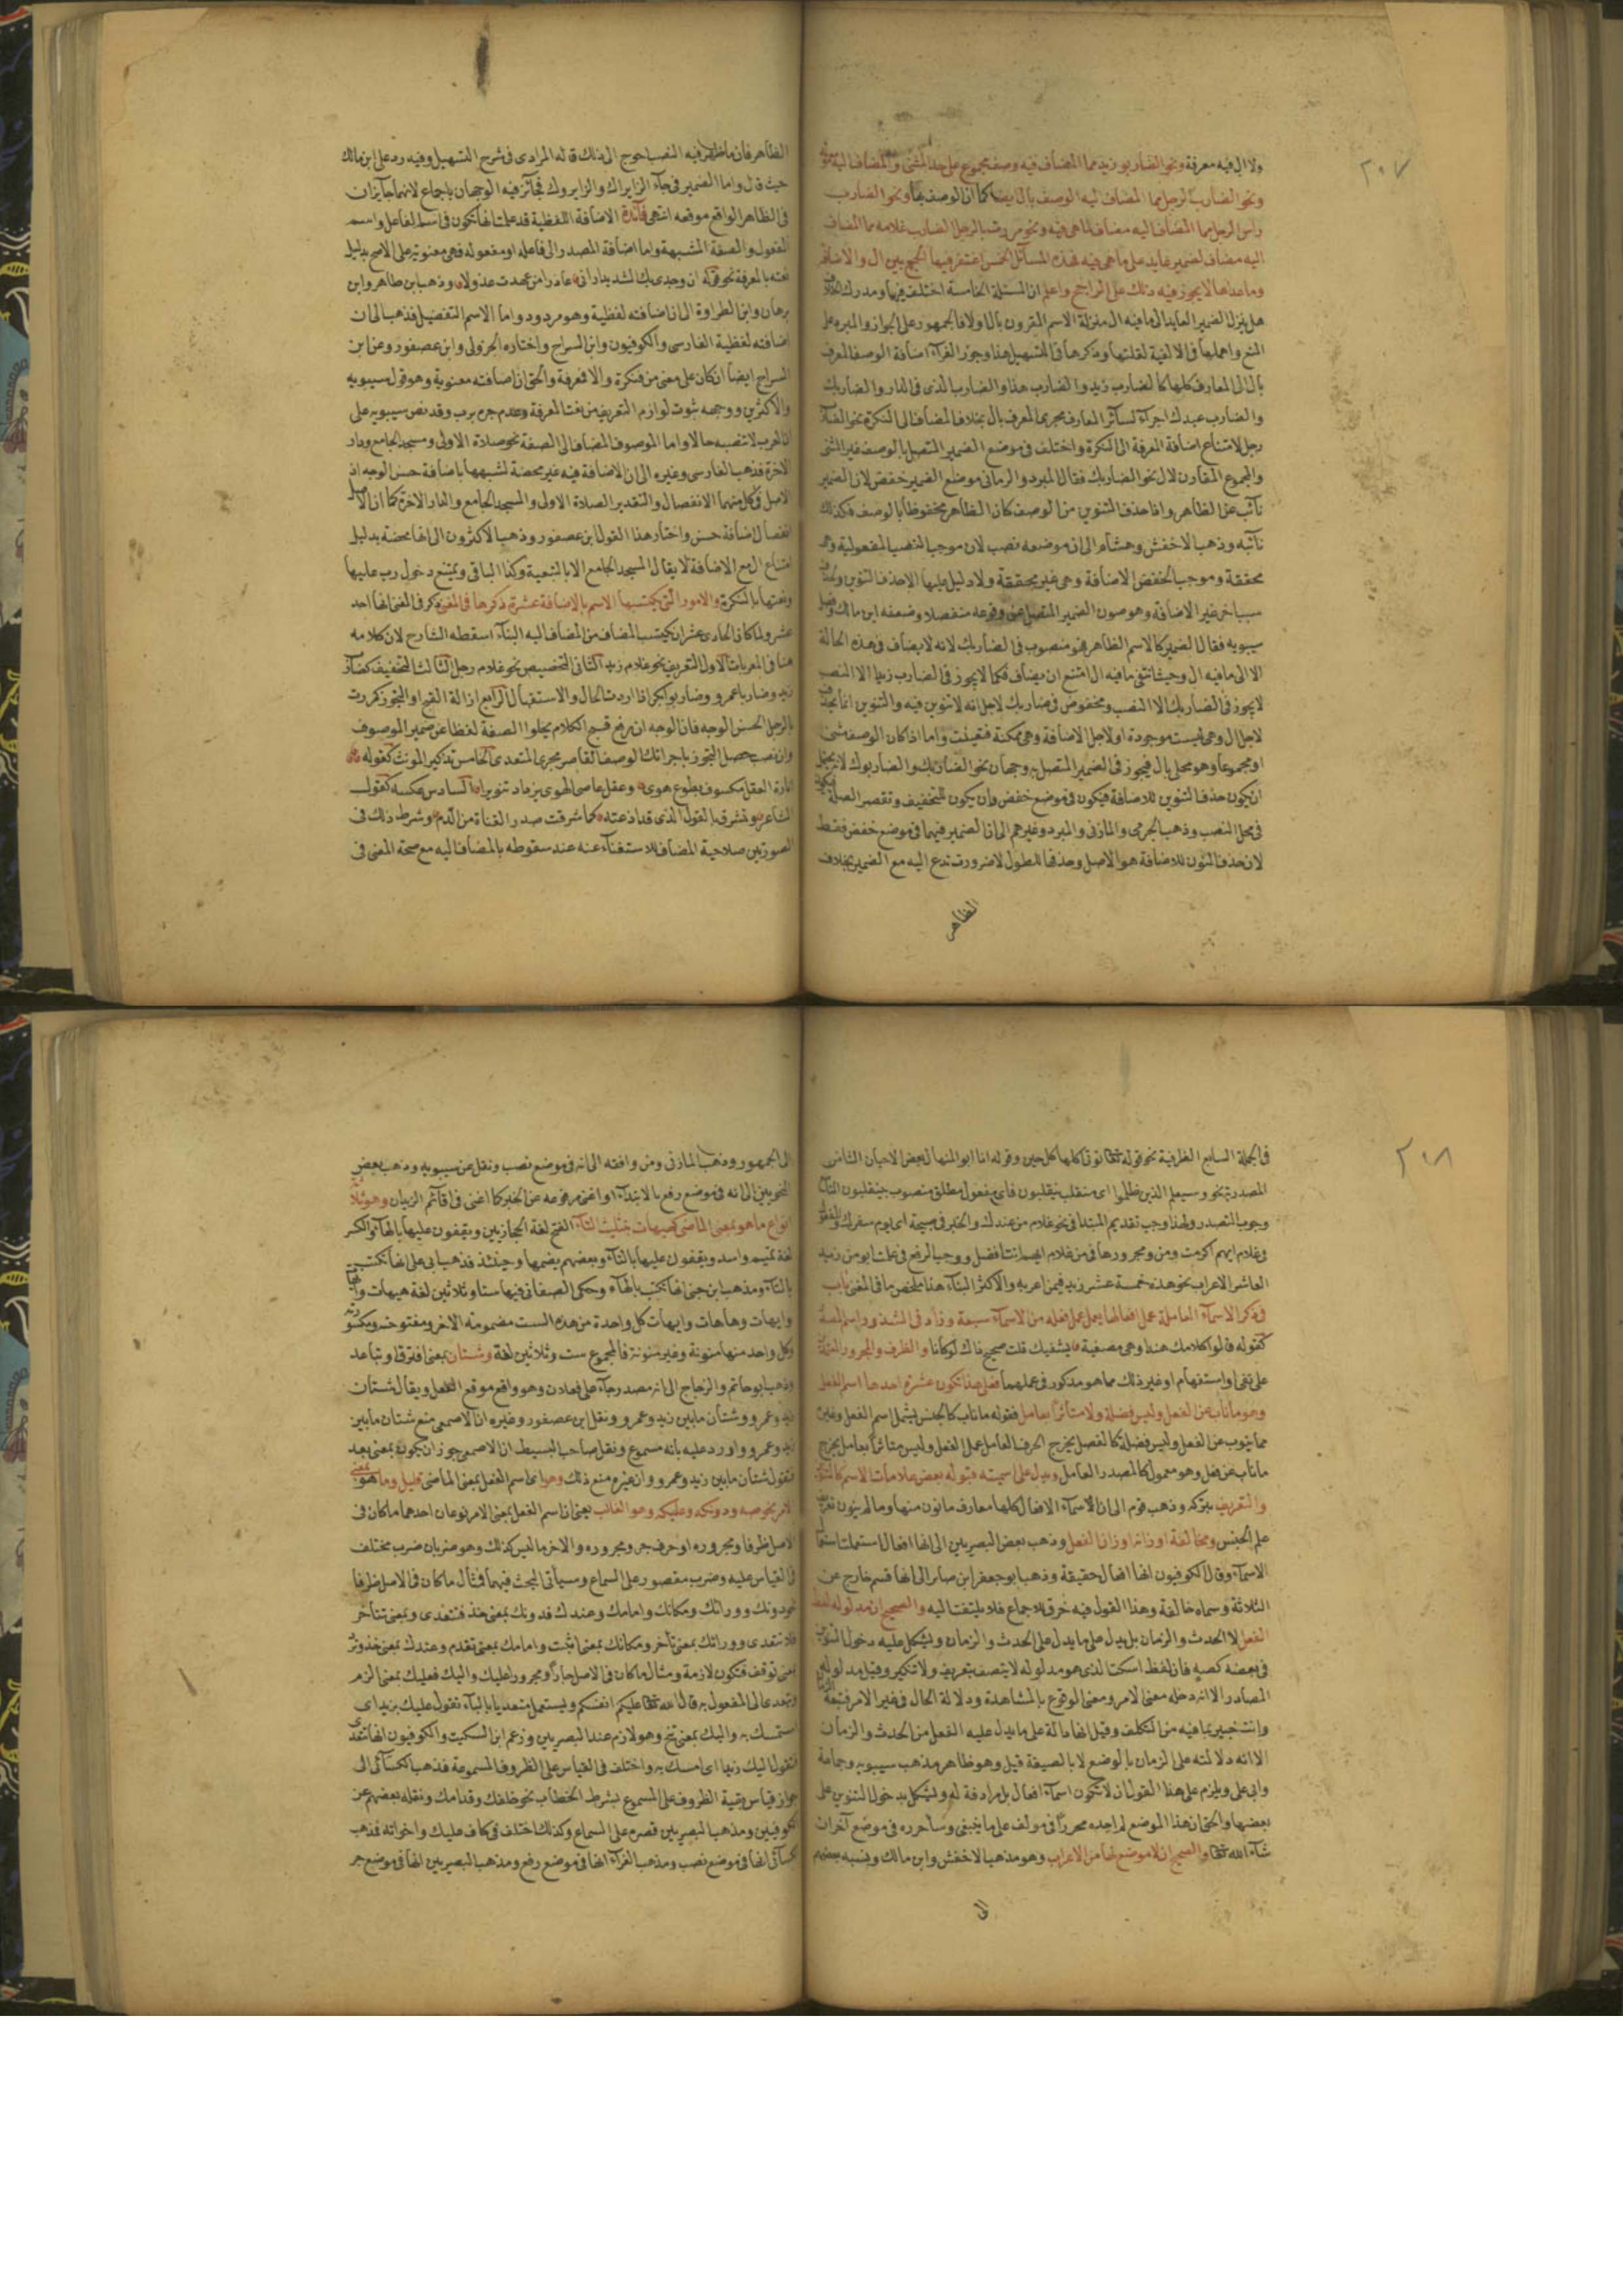 ٢٠٧
ولا الى فيه معرفة ونحو الضاربو زيد مما المضاف فيه وصف مجموع على حد المثنى والمضاف اليه
ونحو الضارب الرجل مما المضاف اليه الوصف بال ايضا كما ان الوصف بها ونحو الضارب
راس الرجل مما المضاف اليه مضاف لما هى فيه ونحو مررت بالرجل الضارب غلامه مما المضاف
اليه مضاف لضمير عايد على ما هى فيه فهذه المسائل الخمس اغتفر فيها الجمع بين ال والاضافة
وما عداها لا يجوز فيه ذلك على الراجح واعلم ان المسئلة الخامسة اختلف فيها ومدرك الخلاف
هل ينزل الضمير العايد الى ما فيه ال منزلة الاسم المقرون بال اولا فالجمهور على الجواز والمبرد على
المنع واهملها فى الالفية لقلتها وذكرها فى التسهيل هذا وجوز الفراء اضافة الوصف المعرف
بال الى المعارف كلها كالضارب زيد والضارب هذا والضارب الذى فى الدار والضاربك
والضارب عبدك اجراء لسائر المعارف مجرى المعرف بال بخلاف المضاف الى النكرة نحو الضارب
رجل لامتناع اضافة المعرفة الى النكرة واختلف فى موضع الضمير المتصل بالوصف غير المثنى
والمجموع المقارن لال نحو الضاربك فقال المبرد والرمانى موضع الضمير خفض لان الضمير
نائب عن الظاهر واذا حذف التنوين من الوصف كان الظاهر مخفوظا بالوصف فكذلك
نائبه وذهب الاخفش وهشام الى ان موضعه نصب لان موجب النصب المفعولية وهى
محققة وموجب الخفض الاضافة وهى غير محققة ولا دليل عليها الا حذف التنوين
سببا خر غير الاضافة وهو صون الضمير المتصل عن وقوعه منفصلا وضعفه ابن مالك
سيبويه فقال الضمير كالاسم الظاهر فهو منصوب فى الضاربك لانه لا يضاف فى هذه الحالة
الا الى ما فيه ال وحيث انتفى ما فيه ال امتنع ان يضاف فكما لا يجوز فى الضارب زيدا الا النصب
لا يجوز فى الضاربك الا النصب ومخفوض فى ضاربك لاجل انه لا تنوين فيه والتنوين انما
لاجل ال وهى ليست موجودة او لاجل الاضافة وهى ممكنة فتعينت واما اذا كان الوصف مثنى
او مجموعا وهو محل بال فيجوز فى الضمير المتصل به وجهان نحو الضارباك والضاربوك لانه
ان يكون حذف التنوين للاضافة فيكون فى موضع خفض وان يكون للتخفيف وتقصر الصلة
فى محل النصب وذهب الجرمى والمازنى والمبرد وغيرهم الى ان الضمير فيهما فى موضع خفض فقط
لان حذف النون للاضافة هو الاصل وحذفها للطول لا ضرورة تدع اليه مع الضمير بخلاف
الظاهر
الظاهر فان ما ظهر فيه النصب احوج الى ذلك قاله المرادى فى شرح التسهيل وفيه رد على ابن مالك
حيث قال واما الضمير فى جاء الزايراك والزايروك فجائز فيه الوجهان باجماع لانهما جايزان
فى الظاهر الواقع موقعه انتهى فائدة الاضافة اللفظية قد علمت انها تكون فى اسم الفاعل واسم
المفعول والصفة المشبهة واما اضافة المصدر الى فاعله او مفعوله فهى معنوية على الاصح بدليل
نعته بالمعرفة نحو قوله ان وجدى بك الشديد ارانى عاذرا من عهدت عذولا وذهب ابن طاهر وابن
برهان وابن الطراوة الى ان اضافته لفظية وهو مردود واما الاسم التفضيل فذهب الى ان
اضافته لفظية الفارسى والكوفيون وابن السراج واختاره الجزولى وابن عصفور وعن ابن
السراج ايضا ان كان على معنى من فنكرة والا فمعرفة والحق ان اضافته معنوية وهو قول سيبويه
والاكثرين ووجهه ثبوت لوازم التعريف من نعت المعرفة وعدم جره برب وقد نص سيبويه على
ان العرب لا تنصبه حالا واما الموصوف المضاف الى الصفة نحو صلاة الاولى ومسجد الجامع ودار
الاخرة فذهب الفارسى وغيره الى ان الاضافة فيه غير محضة لشبهها باضافة حسن الوجه اذ
الاصل فى كل منهما الانفصال والتقدير الصلاة الاولى والمسجد الجامع والدار الاخرة كما ان الاصل
انفصال اضافة حسن واختار هذا القول ابن عصفور وذهب الاكثرون الى انها محضة بدليل
امتناع ال مع الاضافة لا يقال المسجد الجامع الا بالتبعية وكذا الباقى ويمتنع دخول رب عليها
ونعتها بالنكرة والامور التى يكتسبها الاسم بالاضافة عشرة ذكرها فى المغنى ذكر فى المغنى انها احد
عشر ولما كان الحادى عشر ان يكتسب المضاف من المضاف اليه البناء اسقطه الشارح لان كلامه
هنا فى المعربات الاول التعريف نحو غلام زيد الثانى التخصيص نحو غلام رجل الثالث التخفيف كضارب
زيد وضاربا عمرو وضاربو بكر اذا اردت الحال والاستقبال الرابع ازالة القبح او التجوز كمررت
بالرجل الحسن الوجه فان الوجه ان رفع قبح الكلام بخلو الصفة لفظا عن ضمير الموصوف
وان نصب حصل التجوز باجرائك الوصف القاصر مجرى المتعدى الخامس تذكير المونث كقوله
انارة العقل مكسوف بطوع هوى وعقل عاصى الهوى يزداد تنويرا السادس عكسه كقول
الشاعر وتشرق بالقول الذى قد اذعته كما شرقت صدر القناة من الدم وشرط ذلك فى
الصورتين صلاحية المضاف للاستغناء عنه عند سقوطه بالمضاف اليه مع صحة المعنى فى
٢٠٨
فى الجملة السابع الظرفية نحو قوله تعالى توتى اكلها كل حين وقوله انا ابو المنهال بعض الاحيان الثامن
المصدرية نحو وسيعلم الذين ظلموا اى منقلب ينقلبون فاى مفعول مطلق منصوب بينقلبون التاسع
وجوب التصدر ولهذا وجب تقديم المبتدا فى نحو غلام من عندك والخبر فى صبيحة اى يوم سفرك والمفعول
وغلام ايهم اكرمت ومن ومجرورها فى من غلام ايهم انت افضل ووجب الرفع فى علمت ابو من زيد
العاشر الاعراب نحو هذه خمسة عشر زيد فيمن اعربه والاكثر البناء هذا ملخص ما فى المغنى باب
فى ذكر الاسماء العاملة عمل افعالها يعمل عمل فعله من الاسماء سبعة وزاد فى الشذور اسم المصدر
كقوله قالوا كلامك هندا وهى مصغية يشفيك قلت صحيح ذاك لو كانا والظرف والمجرور
على نفى او استفهام او غير ذلك مما هو مذكور فى عملهما فعلى هذا تكون عشرة احدها اسم الفعل
وهو ما ناب عن الفعل وليس فضلة ولا متاثرا بعامل فقوله ما ناب كالجنس يشمل اسم الفعل وغيره
مما ينوب عن الفعل وليس فضلة كالفصل يخرج الحرف العامل عمل الفعل وليس متاثرا بعامل يخرج
ما ناب عن فعل وهو معمول كالمصدر العامل ويدل على اسميته قبوله بعض علامات الاسم كالتنوين
والتعريف بتركه وذهب قوم الى ان الاسماء الافعال كلها معارف ما نون منها وما لم ينون تعريف
علم الجنس ومخالفة اوزانه اوزان الفعل وذهب بعض البصريين الى انها افعال استعملت استعمال
الاسماء وقال الكوفيون انها افعال حقيقة وذهب ابو جعفر ابن صابر الى انها قسم خارج عن
الثلاثة وسماه خالفة وهذا القول فيه خرق للاجماع فلا يلتفت اليه والصحيح ان مدلوله لفظ
الفعل لا الحدث والزمان بل يدل على ما يدل على الحدث والزمان ويشكل عليه دخول التنوين
فى بعضه كصه فان لفظ اسكت الذى هو مدلوله لا يتصف بتعريف ولا تنكير وقيل مدلولها
المصادر الا انه دخله معنى الامر ومعنى الوقوع بالمشاهدة ودلالة الحال فى غير الامر
وانت خبير بما فيه من التكلف وقيل انها دالة على ما يدل عليه الفعل من الحدث والزمان
الا انه دلالته على الزمان بالوضع لا بالصيغة قيل وهو ظاهر مذهب سيبويه وجماعة
وابى على ويلزم على هذا القول ان لا تكون اسماء افعال بل مرادفة له ويشكل بدخول التنوين على
بعضها والحق ان هذا الموضع لم اجده محررا فى مولف على ما ينبغى وساحرره فى موضع آخر ان
شاء الله تعالى والصحيح ان لا موضع لها من الاعراب وهو مذهب الاخفش وابن مالك ونسبه بعضهم
الى
الى الجمهور وذهب المازنى ومن وافقه الى انه فى موضع نصب ونقل عن سيبويه وذهب بعض
النحويين الى انه فى موضع رفع بالابتداء واغنى مرفوعه عن الخبر كما اغنى فى اقائم الزيدان وهو ثلاثة
انواع ما هو بمعنى الماضى كهيهات بتثليث التاء الفتح لغة الحجازيين ويقفون عليها بالهاء والكسر
لغة تميم واسد ويقفون عليها بالتاء وبعضهم يضمها وحينئذ فذهب ابى على انها تكتب
بالتاء ومذهب ابن جنى انها تكتب بالهاء وحكى الصغانى فيها ستا وثلاثين لغة هيهات وايهات
وايهات وهاهات وايهات كل واحدة من هذه الست مضمومة الاخر ومفتوحه ومكسورته
وكل واحد منها منونة وغير منونة فالمجموع ست وثلاثين لغة وشتان بمعنى افترق او تباعد
وذهب ابو حاتم والزجاج الى انه مصدر جاء على فعلان وهو واقع موقع الفعل ويقال شتان
زيد وعمرو وشتان ما بين زيد وعمرو ونقل ابن عصفور وغيره ان الاصمعى منع شتان ما بين
زيد وعمرو واورد عليه بانه مسموع ونقل صاحب البسيط ان الاصمعى جوز ان يكون بمعنى بعد
فتقول شتان ما بين زيد وعمرو وان غيره منع ذلك وهو اى اسم الفعل بمعنى الماضى قليل وما هو بمعنى
الامر نحو صه ودونكه وعليكه وهو الغالب يعنى ان اسم الفعل بمعنى الامر نوعان احدهما ما كان فى
الاصل ظرفا ومجروره او حرف جر ومجروره والاخر ما ليس كذلك وهو ضربان ضرب مختلف
فى القياس عليه وضرب مقصور على السماع وسياتى البحث فيهما فمثال ما كان فى الاصل ظرفا
نحو دونك وورائك ومكانك وامامك وعندك فدونك بمعنى خذ فتتعدى وبمعنى تتأخر
فلا تتعدى وورائك بمعنى تأخر ومكانك بمعنى اثبت وامامك بمعنى تقدم وعندك بمعنى خذ وترد
بمعنى توقف فتكون لازمة ومثال ما كان فى الاصل جارا ومجرورا عليك واليك فعليك بمعنى الزم
وتتعدى الى المفعول به قال الله تعالى عليكم انفسكم ويستعمل متعديا بالباء تقول عليك بزيد اى
استمسك به واليك بمعنى تنح وهو لازم عند البصريين وزعم ابن السكيت والكوفيون انها تتعدى
فتقول اليك زيدا اى امسك به واختلف فى القياس على الظروف المسموعة فذهب الكسائى الى
جواز قياس بقية الظروف على المسموع بشرط الخطاب نحو خلفك وقدامك ونقله بعضهم عن
الكوفيين ومذهب البصريين قصره على السماع وكذلك اختلف فى كاف عليك واخواته فمذهب
الكسائى انها فى موضع نصب ومذهب الفراء انها فى موضع رفع ومذهب البصريين انها فى موضع جر